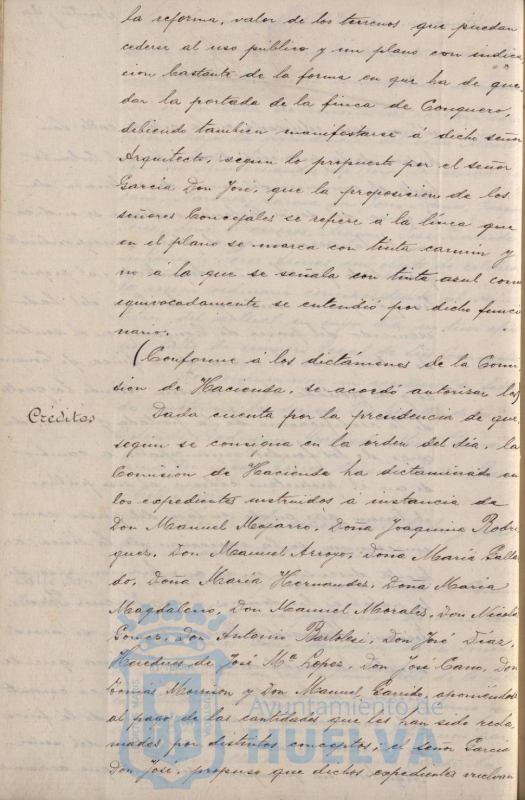 la reforma, valor de los terrenos que puedan
cederse al uso público y un plano con indica-
cion bastante de la forma en que ha de que-
dar la portada de la finca de Conquero,
debiendo tambien manifestarse á dicho señor
Arquitecto, segun lo propuesto por el señor
García Don José, que la proposicion de los
señores Concejales se refiere á la línea que
en el plano se marca con tinta carmin y
no á la que se señala con tinta azul como
equivocadamente se entendió por dicho funcio
nario.
(Conforme á los dictámenes de la Comi
sion de Hacienda, se acordó autorizar los)
Créditos
Dada cuenta por la presidencia de que,
segun se consigna en la órden del dia, la
Comision de Hacienda ha dictaminado en
los expedientes instruidos á instancia de
Don Manuel Mojarro, Doña Joaquina Rodri
guez, Don Manuel Arroyo, Doña María Galla
do, Doña María Hernandez, Doña María
Magdaleno, Don Manuel Morales, Don Nicolás
Gomez, Don Antonio Bartolesi, Don José Díaz,
Herederos de José Mª Lopez, Don José Cano, Don
Tomás Morrison y Don Manuel Garrido, oponiéndose
al pago de las cantidades que les han sido recla
madas por distintos conceptos; el señor García
Don José, propuso que dichos expedientes vuelvan
Ayuntamiento de
HUELVA